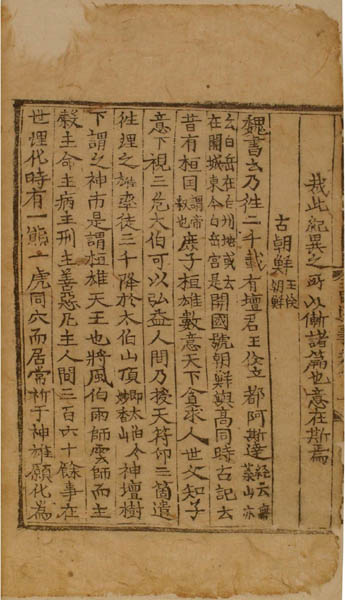 哉此紀異之所以慚諸篇也意在斯焉
古朝鮮王倹朝鮮
魏書云乃徃二千載有壇君王倹立都阿斯達經云無葉山亦
云白岳在白州地或云在開城東今白岳宮是開國號朝鮮與高同時古記云
昔有桓囯謂帝釋也庶子桓雄數意天下貪求人世父知子
意下視三危太伯可以弘益人間乃授天符印三箇遣
徃理之雄率徒三千降於太伯山頂即太伯今妙香山神壇樹
下謂之神市是謂桓雄天王也將風伯雨師雲師而主
糓主命主病主刑主善惡凡主人間三百六十餘事在
世理化時有一熊一虎同穴而居常祈于神雄願化為